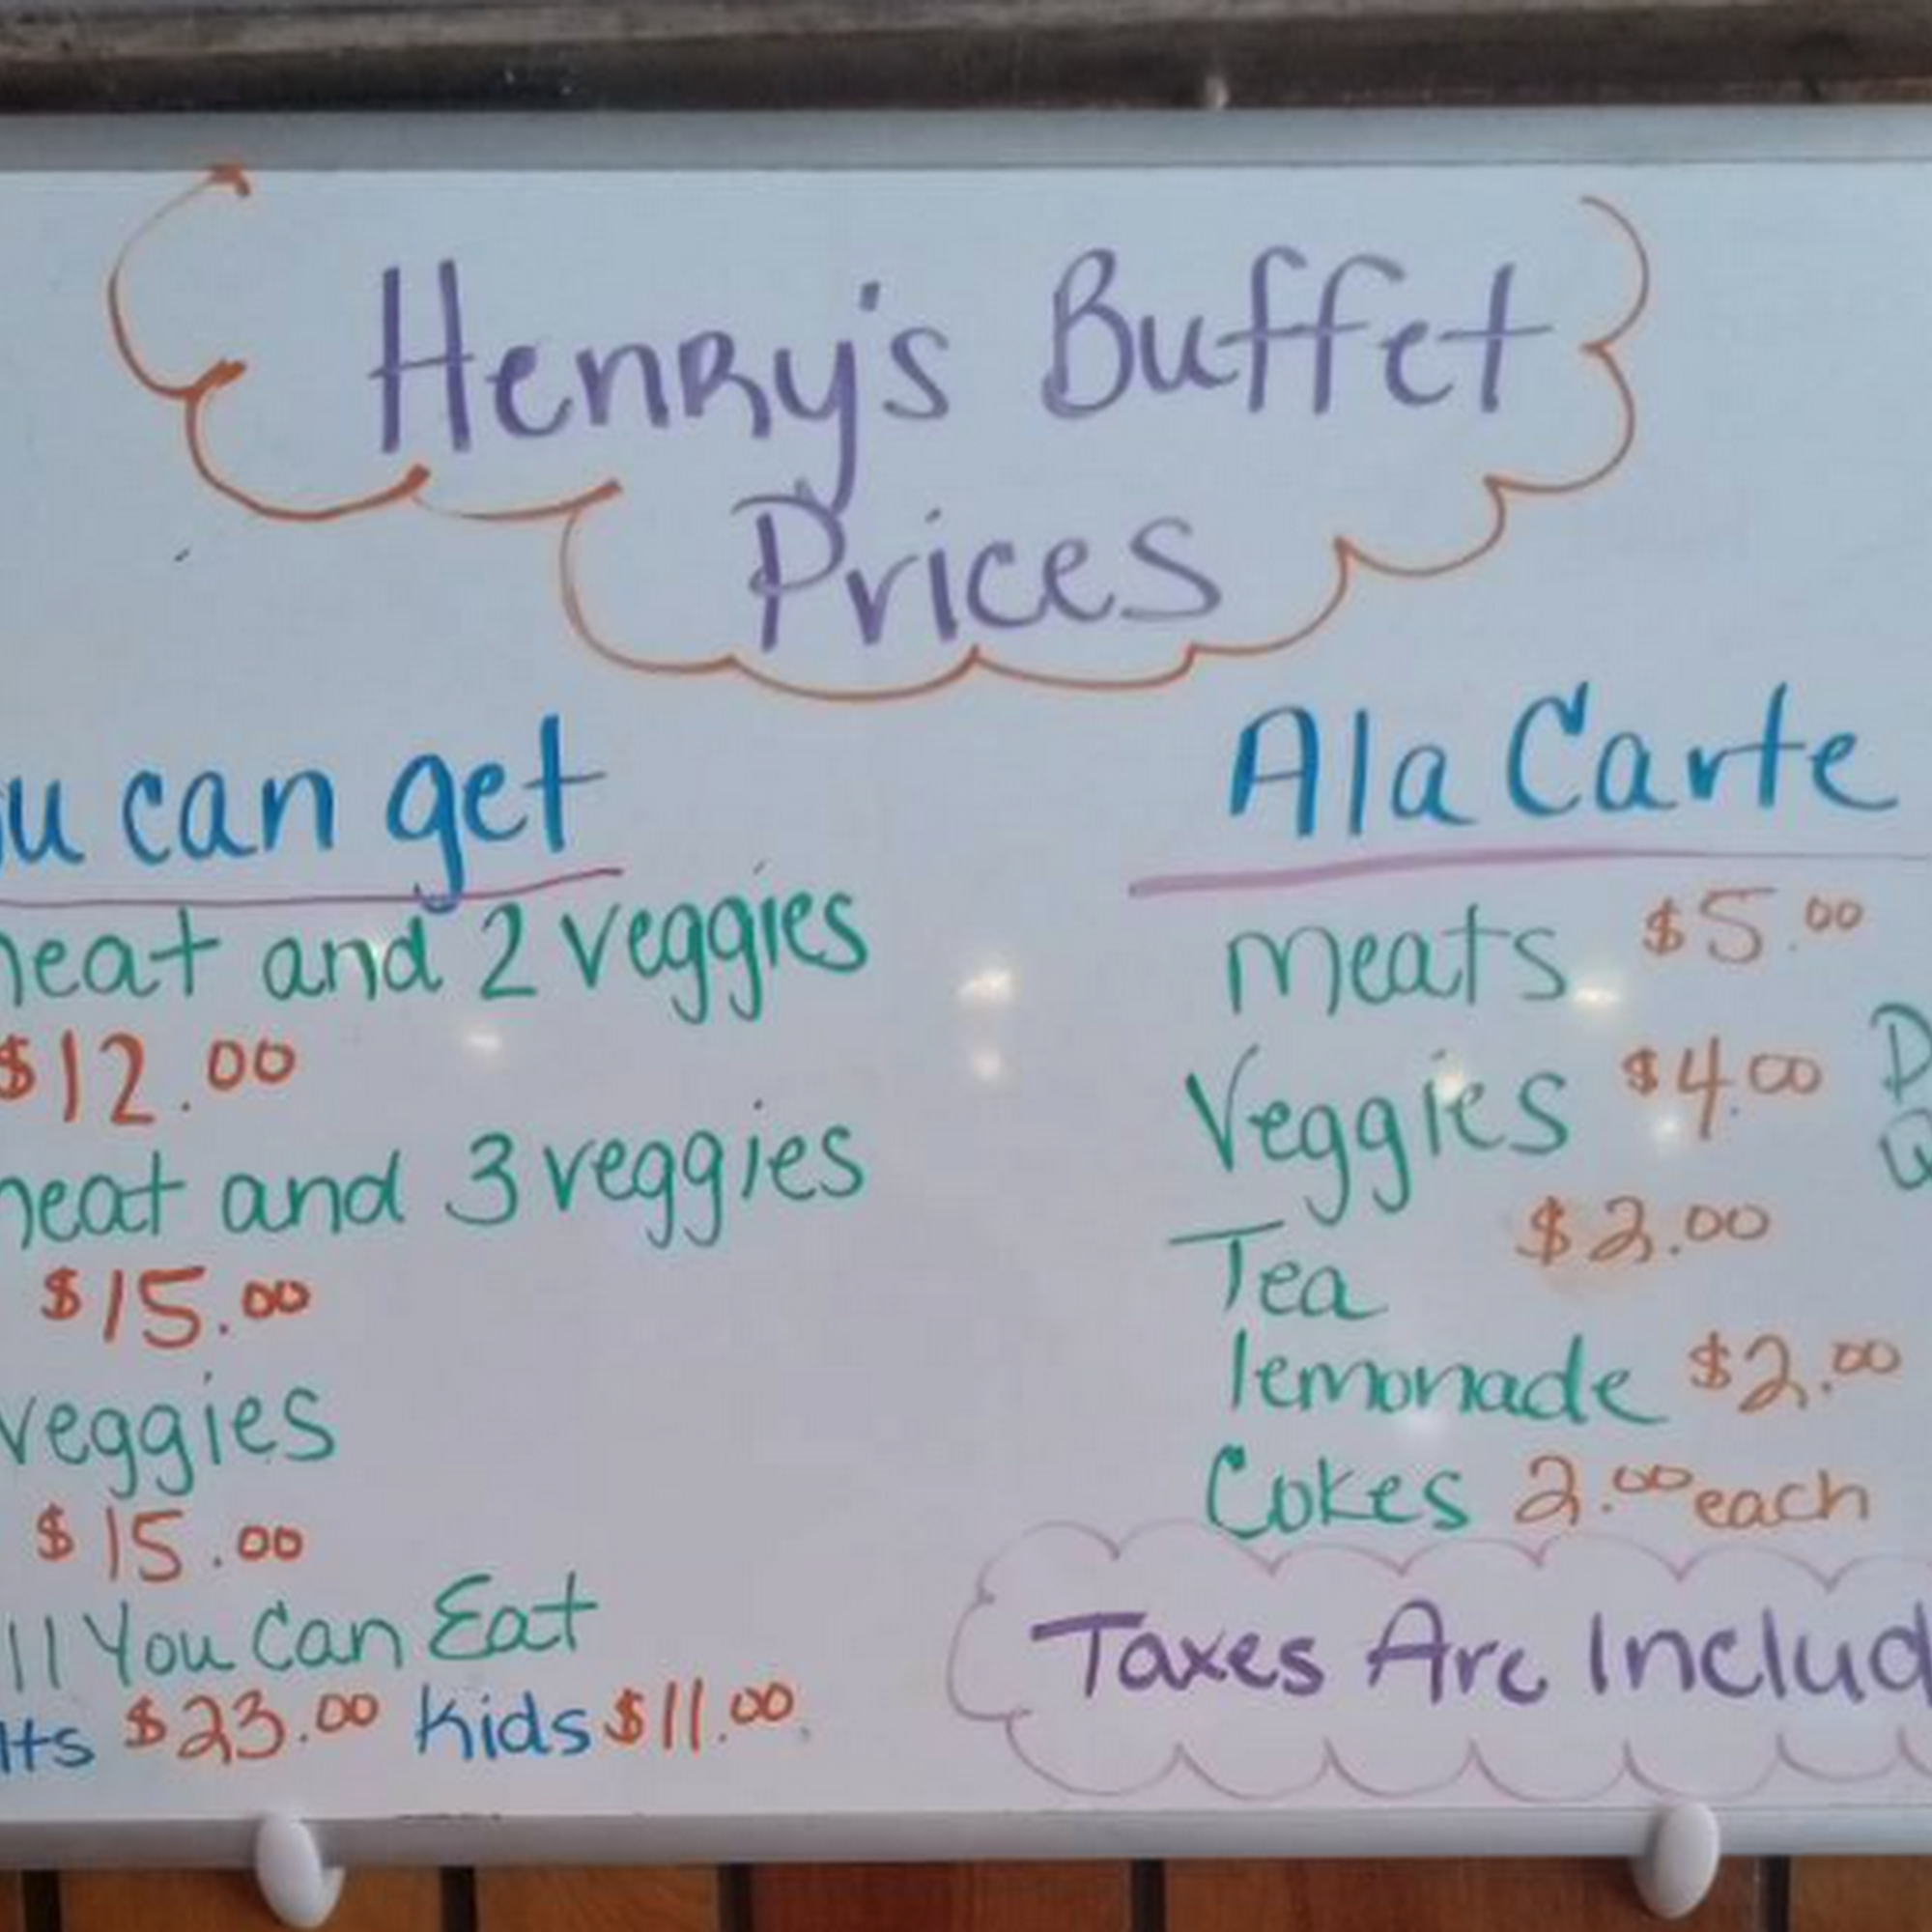 Henry's Buffet
Prices
u can get
eat and 2 veggies
$12.00
eat and 3 veggies
$15.00
veggies
$15.00
ll You Can Eat
lts $23.00 Kids $11.00
Ala Carte
meats $5.00
Veggies $4.00
Tea $2.00
lemonade $2.00
Cokes 2.00 each
Taxes Are Includ